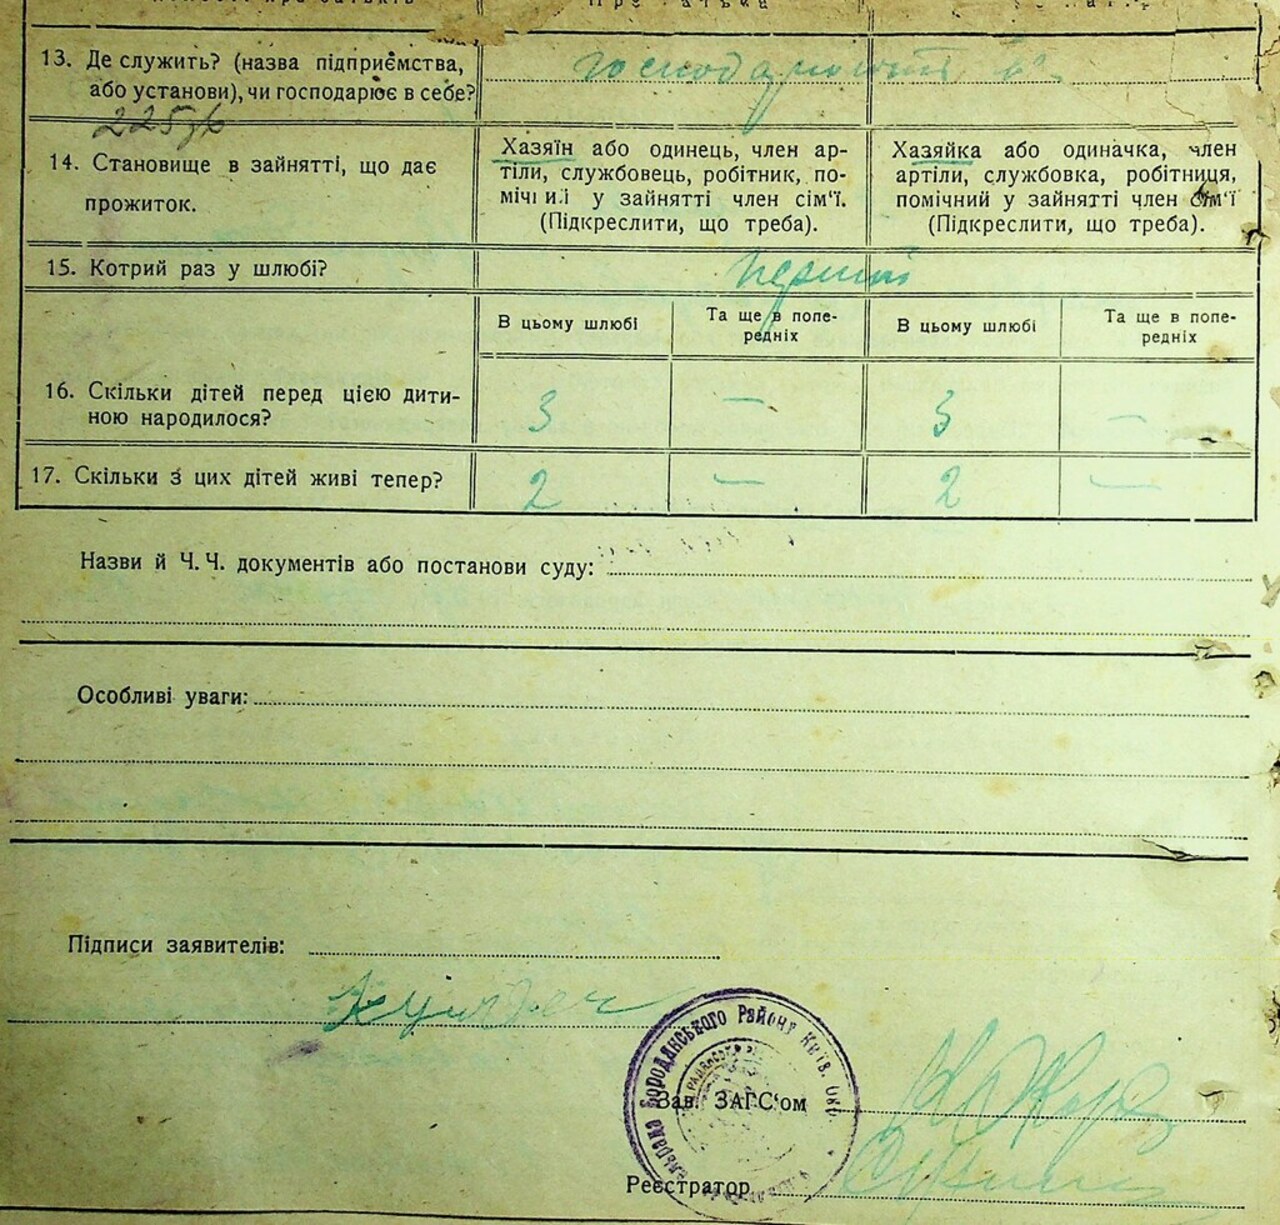 13. Де служить? (назва підприємства,
або установи), чи господарює в себе?
14. Становище в зайнятті, що дає
прожиток.
Хазяїн або одинець, член ар-
тіли, службовець, робітник, по-
мічний у зайнятті член сім'ї.
(Підкреслити, що треба).
Хазяйка або одиначка, член
артіли, службовка, робітниця,
помічний у зайнятті член сім'ї
(Підкреслити, що треба).
15. Котрий раз у шлюбі?
перший
В цьому шлюбі
Та ще в попе-
редніх
В цьому шлюбі
Та ще в попе-
редніх
16. Скільки дітей перед цією дити-
ною народилося?
3 — 3 —
17. Скільки з цих дітей живі тепер?
2 — 2 —
Назви й Ч. Ч. документів або постанови суду:
Особливі уваги:
Підписи заявителів:
Бородянського Району Київ. Окр.
Зав. ЗАГС'ом
Реєстратор